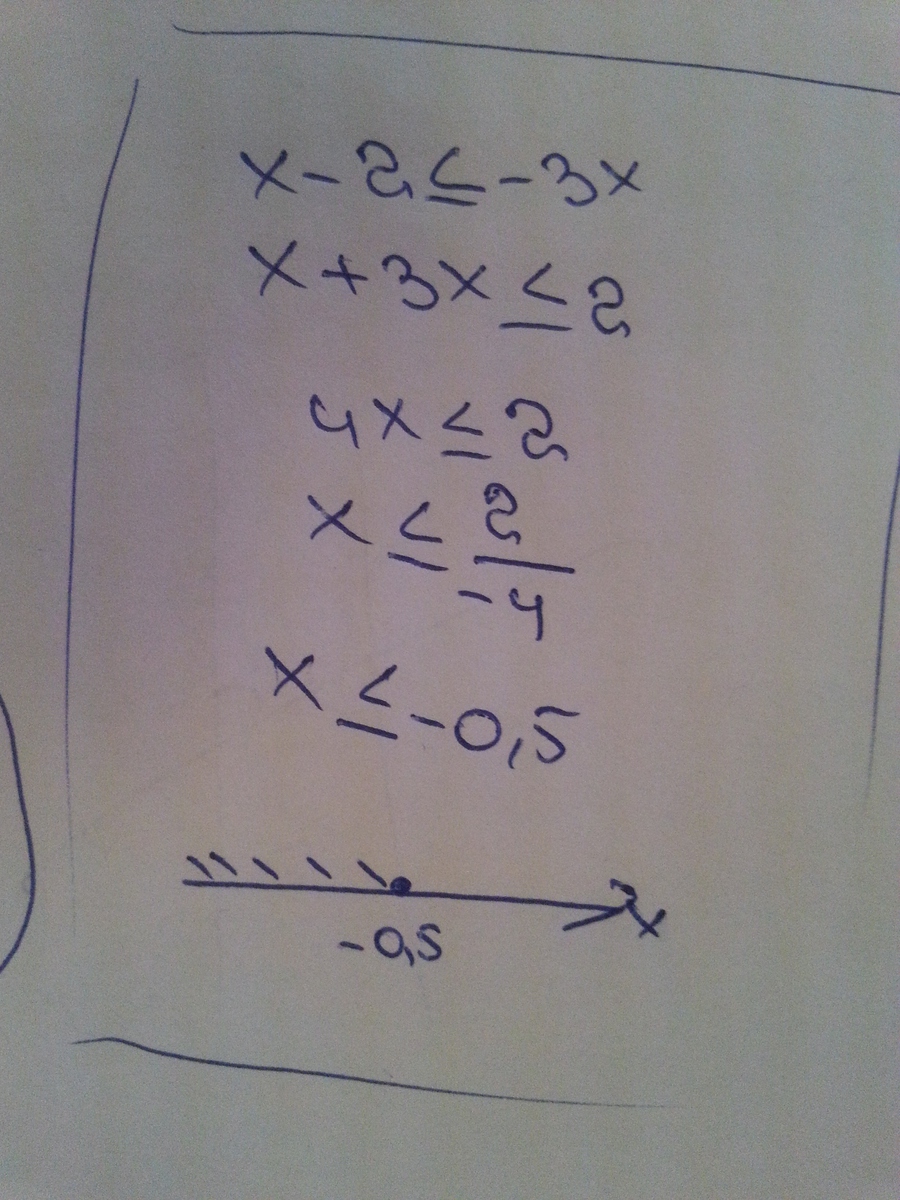 x - 2 ≤ - 3x
x + 3x ≤ 2
4x ≤ 2
x ≤ 2/-4
x ≤ -0,5
-0,5 x